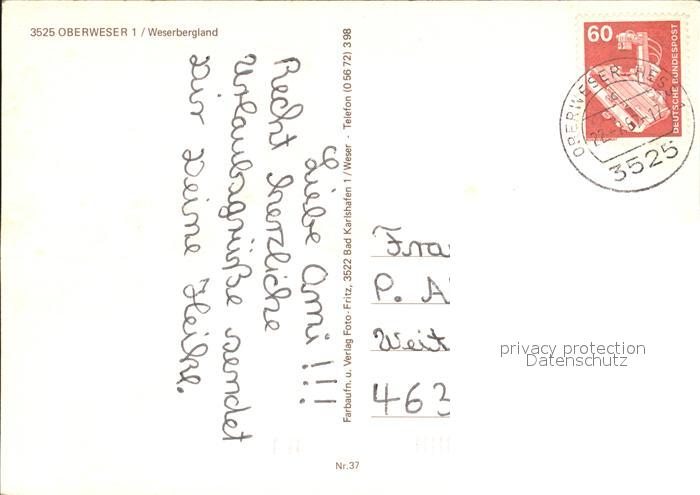 3525 OBERWESER 1 / Weserbergland
Liebe Omi!!!
Recht herzliche
Urlaubsgrüße sendet
Dir Deine Heike.
Farbaufn. u. Verlag Foto-Fritz, 3522 Bad Karlshafen 1/Weser - Telefon (0 56 72) 3 98
Nr. 37
60
DEUTSCHE BUNDESPOST
OBERWESER-HESS
3525
Frau
P. A
Weit
463
privacy protection
Datenschutz